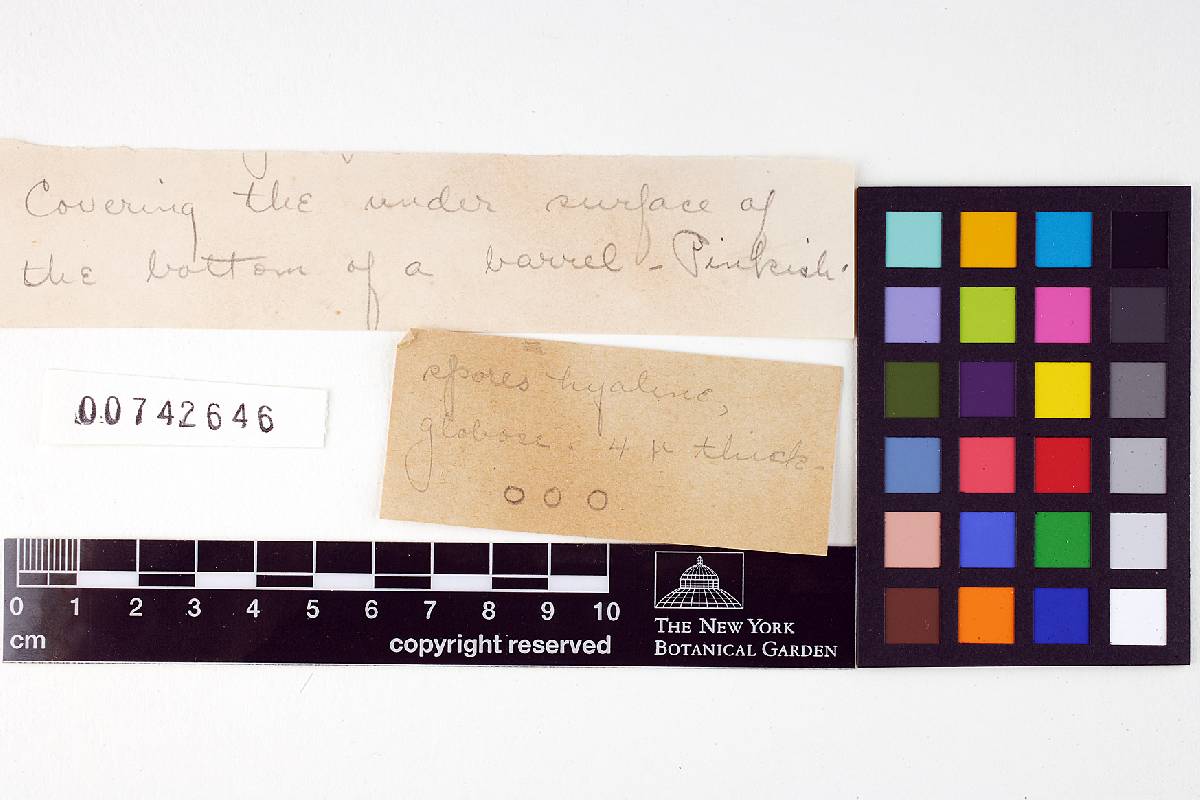 Covering the under surface of
the bottom of a barrel - Pinkish.
00742646
spores hyaline,
globose. 4 μ thick.
0 1 2 3 4 5 6 7 8 9 10
cm
copyright reserved
THE NEW YORK
BOTANICAL GARDEN